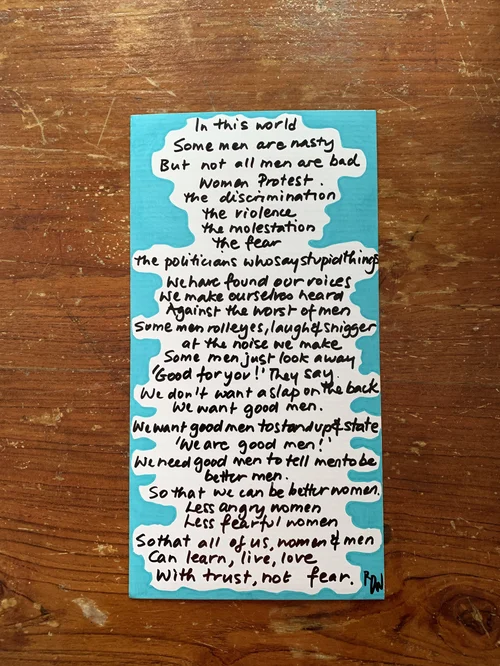 In this world
Some men are nasty
But not all men are bad
Women Protest.
the discrimination
the violence
the molestation
the fear
the politicians who say stupid things
We have found our voices
We make ourselves heard
Against the worst of men
Some men roll eyes, laugh & snigger
at the noise we make
Some men just look away
'Good for you!' They say.
We don't want a slap on the back
We want good men.
We want good men to stand up & state
'We are good men!'
We need good men to tell men to be
better men.
So that we can be better women.
Less angry women
Less fearful women
So that all of us, women & men
Can learn, live, love
With trust, not fear.
RDW